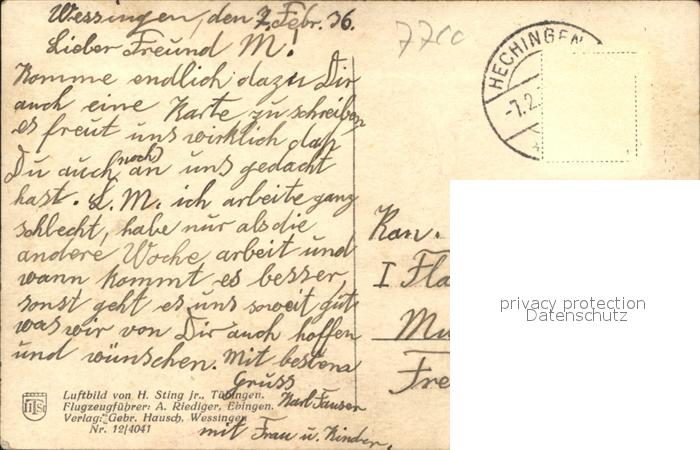 Wessingen, den 7. Febr. 36.
Lieber Freund M!
Komme endlich dazu Dir
auch eine Karte zu schreiben
es freut uns wirklich daß
Du auch (noch) an uns gedacht
hast. L. M. ich arbeite ganz
schlecht, habe nur als die
andere Woche arbeit und
wann kommt es besser,
sonst geht es uns soweit gut
was wir von Dir auch hoffen
und wünschen. Mit bestens
Gruss
Karl Fauser
mit Frau u. Kinder.
7700
HECHINGEN
-7.2.
Kan.
I Fla
Mu
Fre
privacy protection
Datenschutz
Luftbild von H. Sting jr., Tübingen.
Flugzeugführer: A. Riediger, Ebingen.
Verlag: Gebr. Hausch, Wessingen
Nr. 12/4041